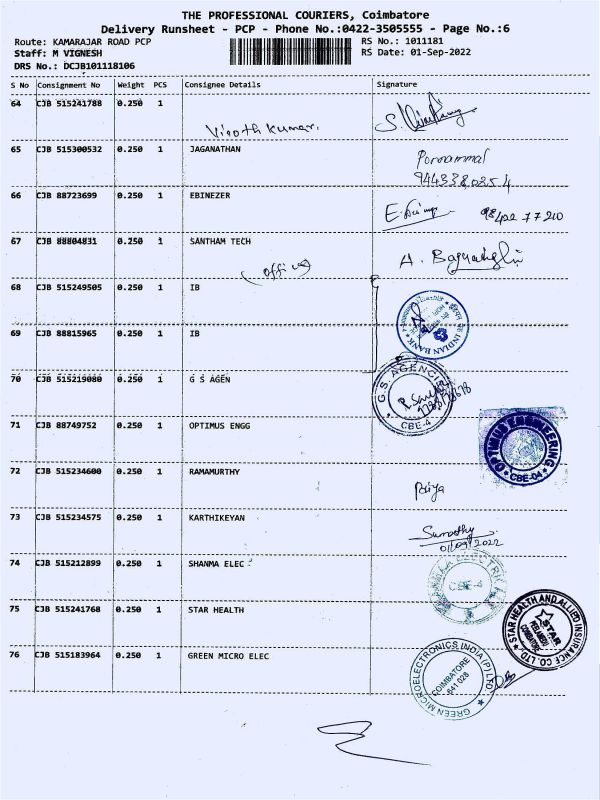 THE PROFESSIONAL COURIERS, Coimbatore
Delivery Runsheet - PCP - Phone No.:0422-3505555 - Page No.:6
Route: KAMARAJAR ROAD PCP RS No.: 1011181
Staff: M VIGNESH RS Date: 01-Sep-2022
DRS No.: DCJB101118106
S No Consignment No Weight PCS Consignee Details Signature
64 CJB 515241788 0.250 1
Vinothkumar.
65 CJB 515300532 0.250 1 JAGANATHAN
Ponnammal
66 CJB 88723699 0.250 1 EBINEZER
98422 77210
67 CJB 88804831 0.250 1 SANTHAM TECH
(office)
A.
68 CJB 515249505 0.250 1 IB
INDIAN BANK
69 CJB 88815965 0.250 1 IB
70 CJB 515219080 0.250 1 G S AGEN
G.S. AGENCIES
CBE-4
71 CJB 88749752 0.250 1 OPTIMUS ENGG
OPTIMUS ENGINEERING
CBE-04
72 CJB 515234600 0.250 1 RAMAMURTHY
Priya
73 CJB 515234575 0.250 1 KARTHIKEYAN
Sumathy
01/09/2022
74 CJB 515212899 0.250 1 SHANMA ELEC
CBE-4
75 CJB 515241768 0.250 1 STAR HEALTH
STAR HEALTH AND ALLIED INSURANCE CO. LTD
STAR
76 CJB 515183964 0.250 1 GREEN MICRO ELEC
GREEN MICROELECTRONICS INDIA (P) LTD
COIMBATORE
641 028